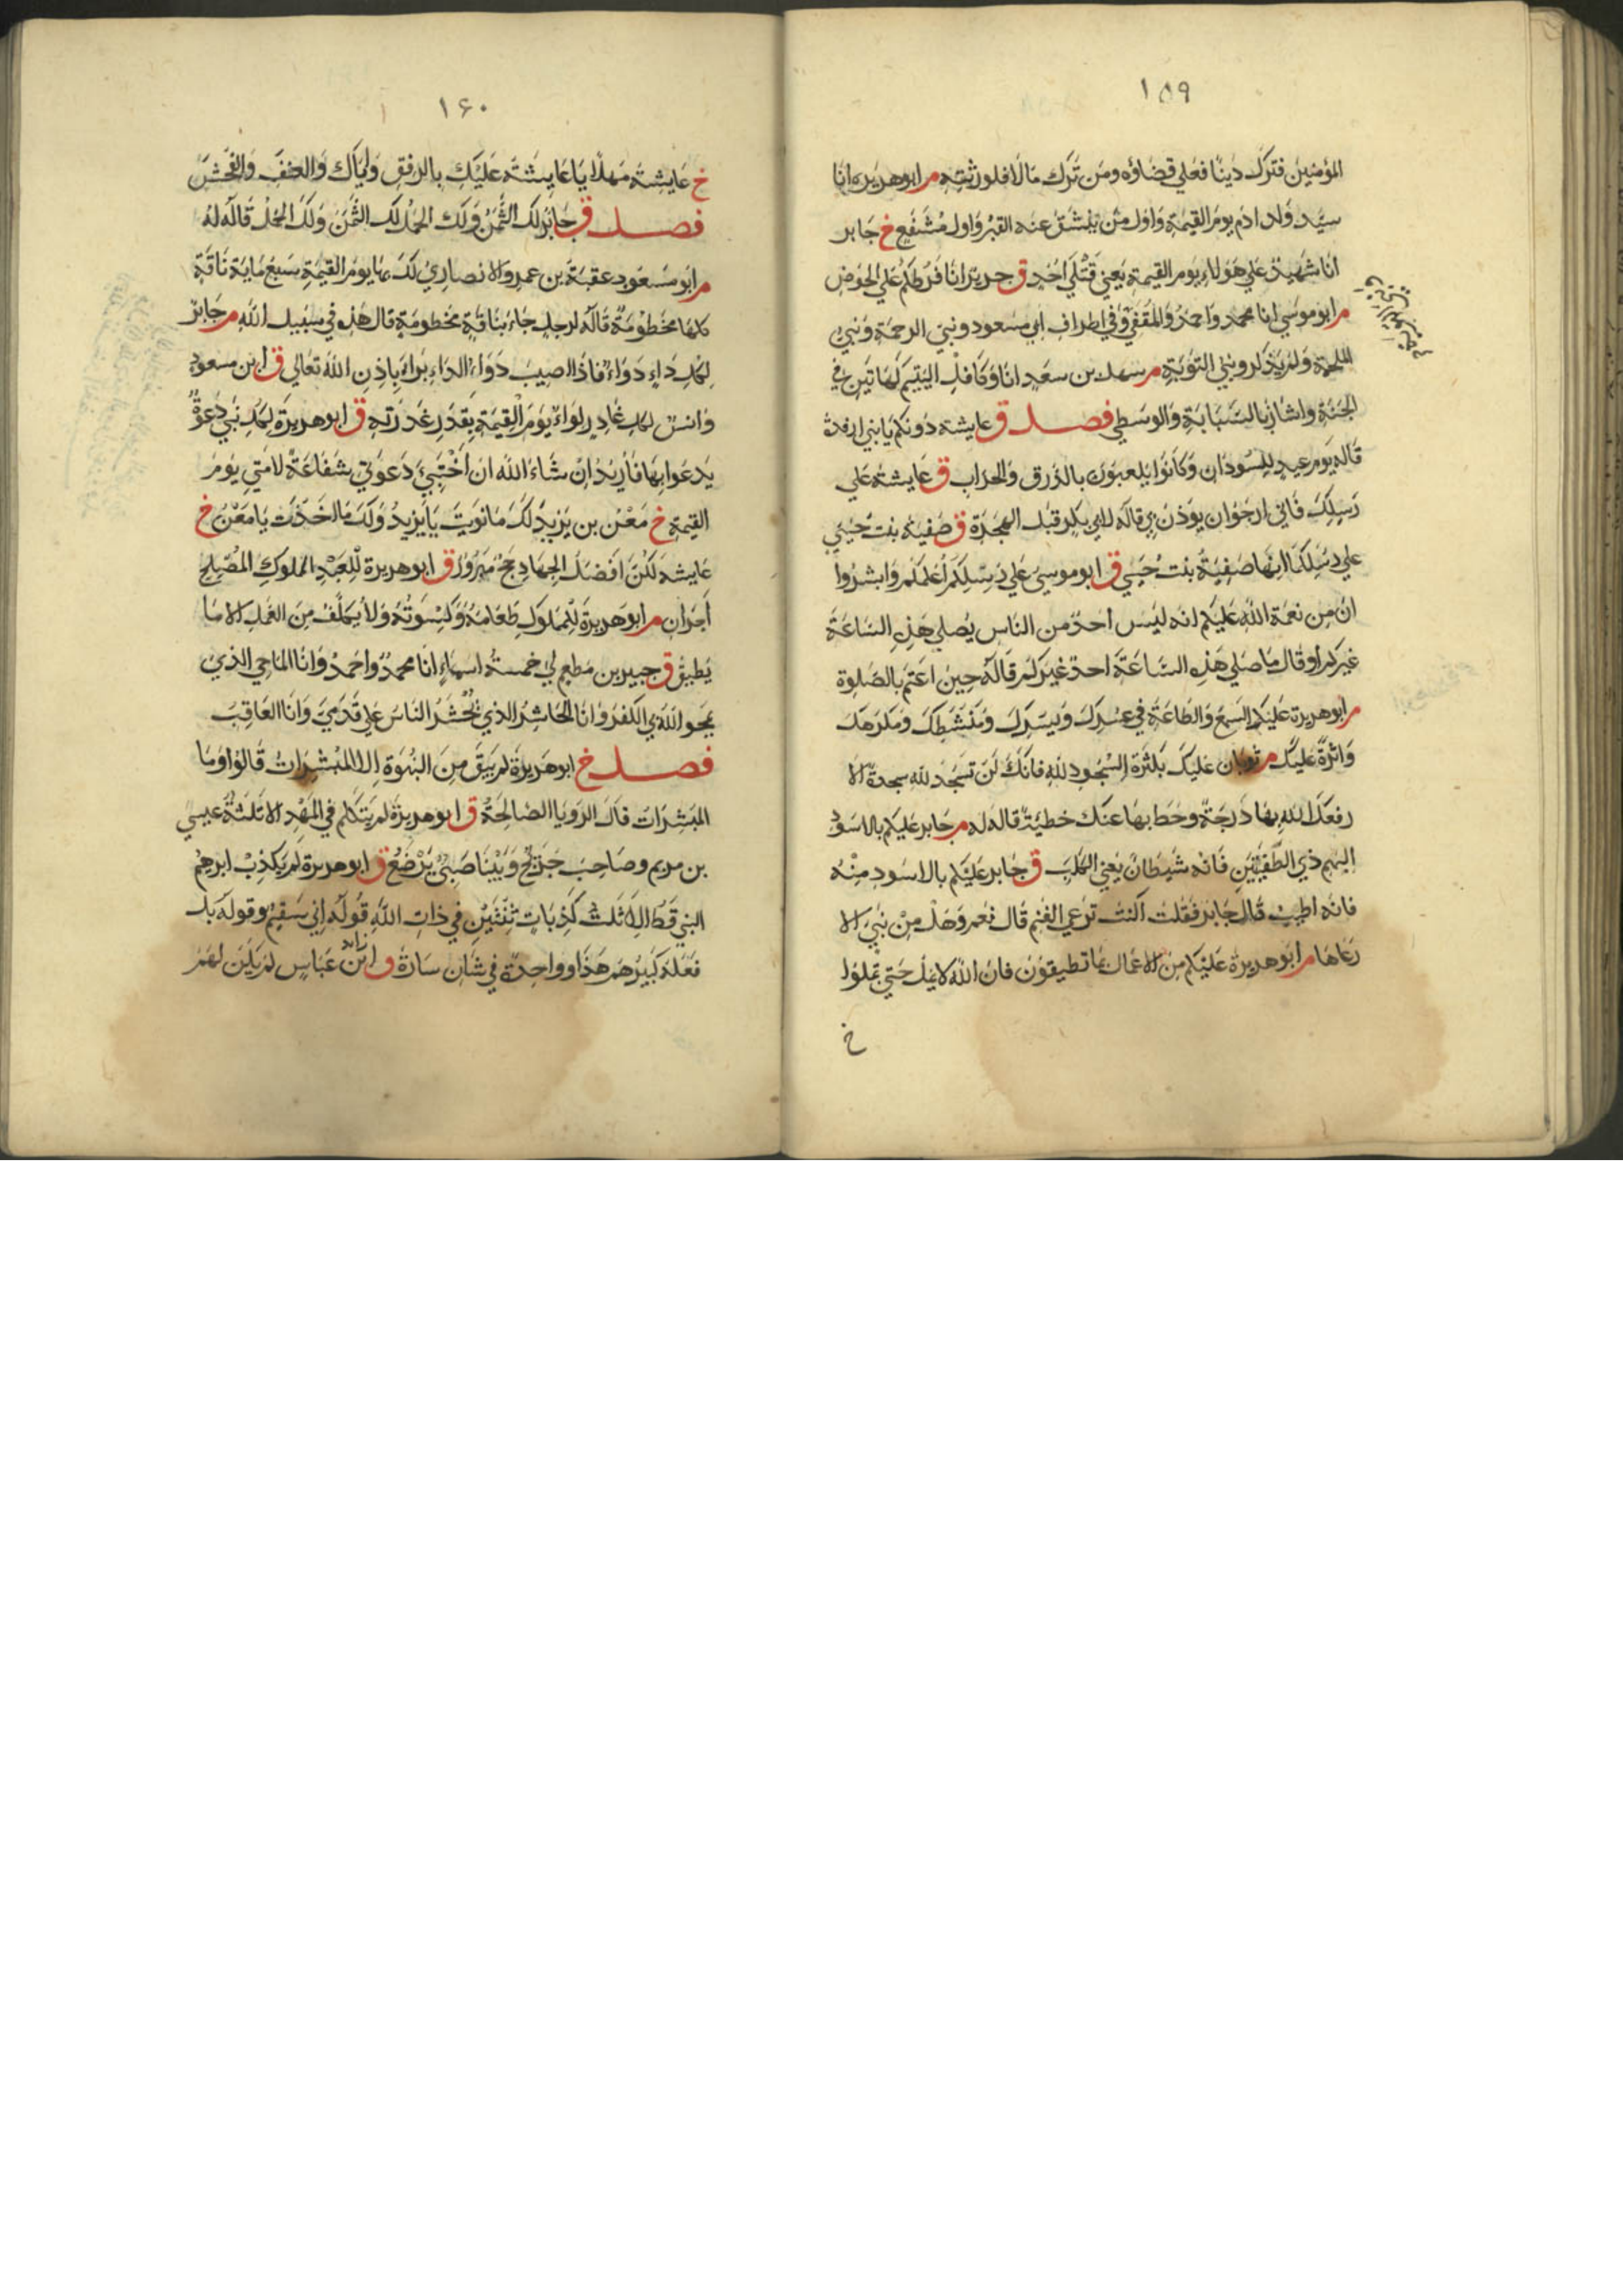 ١٥٩
المؤمنين فترك دينا فعلي قضاؤه ومن ترك مالا فلورثته م ابو هريره انا
سيد ولد ادم يوم القيمة واول من ينشق عنه القبر واول مشفع خ جابر
انا شهيد علي هولاء يوم القيمة يعني قتلي احد ق جرير انا فرطكم علي الحوض
م ابو موسي انا محمد واحمد والمقفي وفي اطراف ابي مسعود ونبي الرحمة ونبي
الملحمة ولم يذكر ونبي التوبة م سهل بن سعد انا وكافل اليتيم كهاتين في
الجنة واشار بالسبابة والوسطي فصل ق عايشه دونكم يا بني ارفدة
قاله يوم عيد للسودان وكانوا يلعبون بالدرق والحراب ق عايشة علي
رسلك فاني ارجوان يوذن لي قاله لابي بكر قبل الهجرة ق صفية بنت حيي
علي رسلكما انها صفية بنت حيي ق ابو موسي علي رسلكم اعلمكم وابشروا
ان من نعمة الله عليكم انه ليس احد من الناس يصلي هذه الساعة
غيركم او قال ما صلي هذه الساعة احد غيركم قاله حين اعتم بالصلوة
م ابو هريرة عليك السمع والطاعة في عسرك ويسرك ومنشطك ومكرهك
واثرة عليك م ثوبان عليك بكثرة السجود لله فانك لن تسجد لله سجدة الا
رفعك الله بها درجة وحط بها عنك خطيئة قاله له م جابر عليكم بالاسود
البهيم ذي الطفيتين فانه شيطان يعني الكلب ق جابر عليكم بالاسود منه
فانه اطيب قال جابر فقلت اكنت ترعي الغنم قال نعم وهل من نبي الا
رعاها م ابو هريرة عليكم من الاعمال ما تطيقون فان الله لا يمل حتي تملوا
خ
١۶٠
خ عايشة مهلا يا عايشة عليك بالرفق واياك والعنف والفحش
فصل ق جابر لك الثمن ولك الجمل لك الثمن ولك الجمل قاله له
م ابو مسعود عقبة بن عمرو الانصاري لك بها يوم القيمة سبع ماية ناقة
كلها مخطومة قاله لرجل جاء بناقة مخطومة قال هذه في سبيل الله م جابر
لكل داء دواء فاذا اصيب دواء الداء براء باذن الله تعالي ق ابن مسعود
وانس لكل غادر لواء يوم القيمة بقدر غدرته ق ابو هريرة لكل نبي دعوة
يدعوا بها فاريد ان شاء الله ان اختبئ دعوتي شفاعة لامتي يوم
القيمة خ معن بن يزيد لك ما نويت يا يزيد ولك ما اخذت يا معن خ
عايشه لكن افضل الجهاد حج مبرور ق ابو هريرة للعبد المملوك المصلح
اجران م ابو هريرة للمملوك طعامه وكسوته ولا يكلف من العمل الا ما
يطيق ق جبير بن مطعم لي خمسة اسماء انا محمد واحمد وانا الماحي الذي
يمحو الله بي الكفر وانا الحاشر الذي يحشر الناس علي قدمي وانا العاقب
فصل خ ابو هريرة لم يبق من النبوة الا المبشرات قالوا وما
المبشرات قال الرويا الصالحة ق ابو هريرة لم يتكلم في المهد الا ثلثة عيسي
بن مريم وصاحب جريج وبينا صبي يرضع ق ابو هريرة لم يكذب ابرهيم
النبي قط الا ثلث كذبات ثنتين في ذات الله قوله اني سقيم وقوله بل
فعله كبيرهم هذا وواحدة في شان سارة ق ابن عباس لم يكن لهم